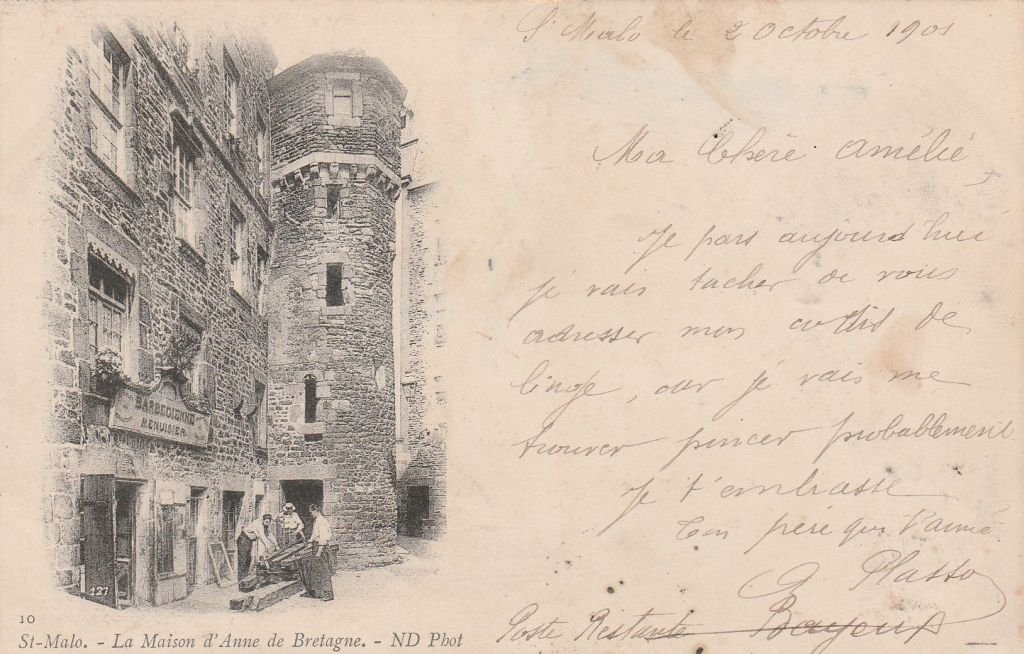 St Malo le 2 Octobre 1901
Ma Chère Amélie
Je pars aujourd'hui
je vais tacher de vous
adresser mon de
linge, car je vais me
trouver pincer probablement
Je t'embrasse
Ton père qui t'aime
Plasso
Poste Restante Bayeux
BARBEDIENNE
MENUISIER
127
10
St-Malo. - La Maison d'Anne de Bretagne. - ND Phot